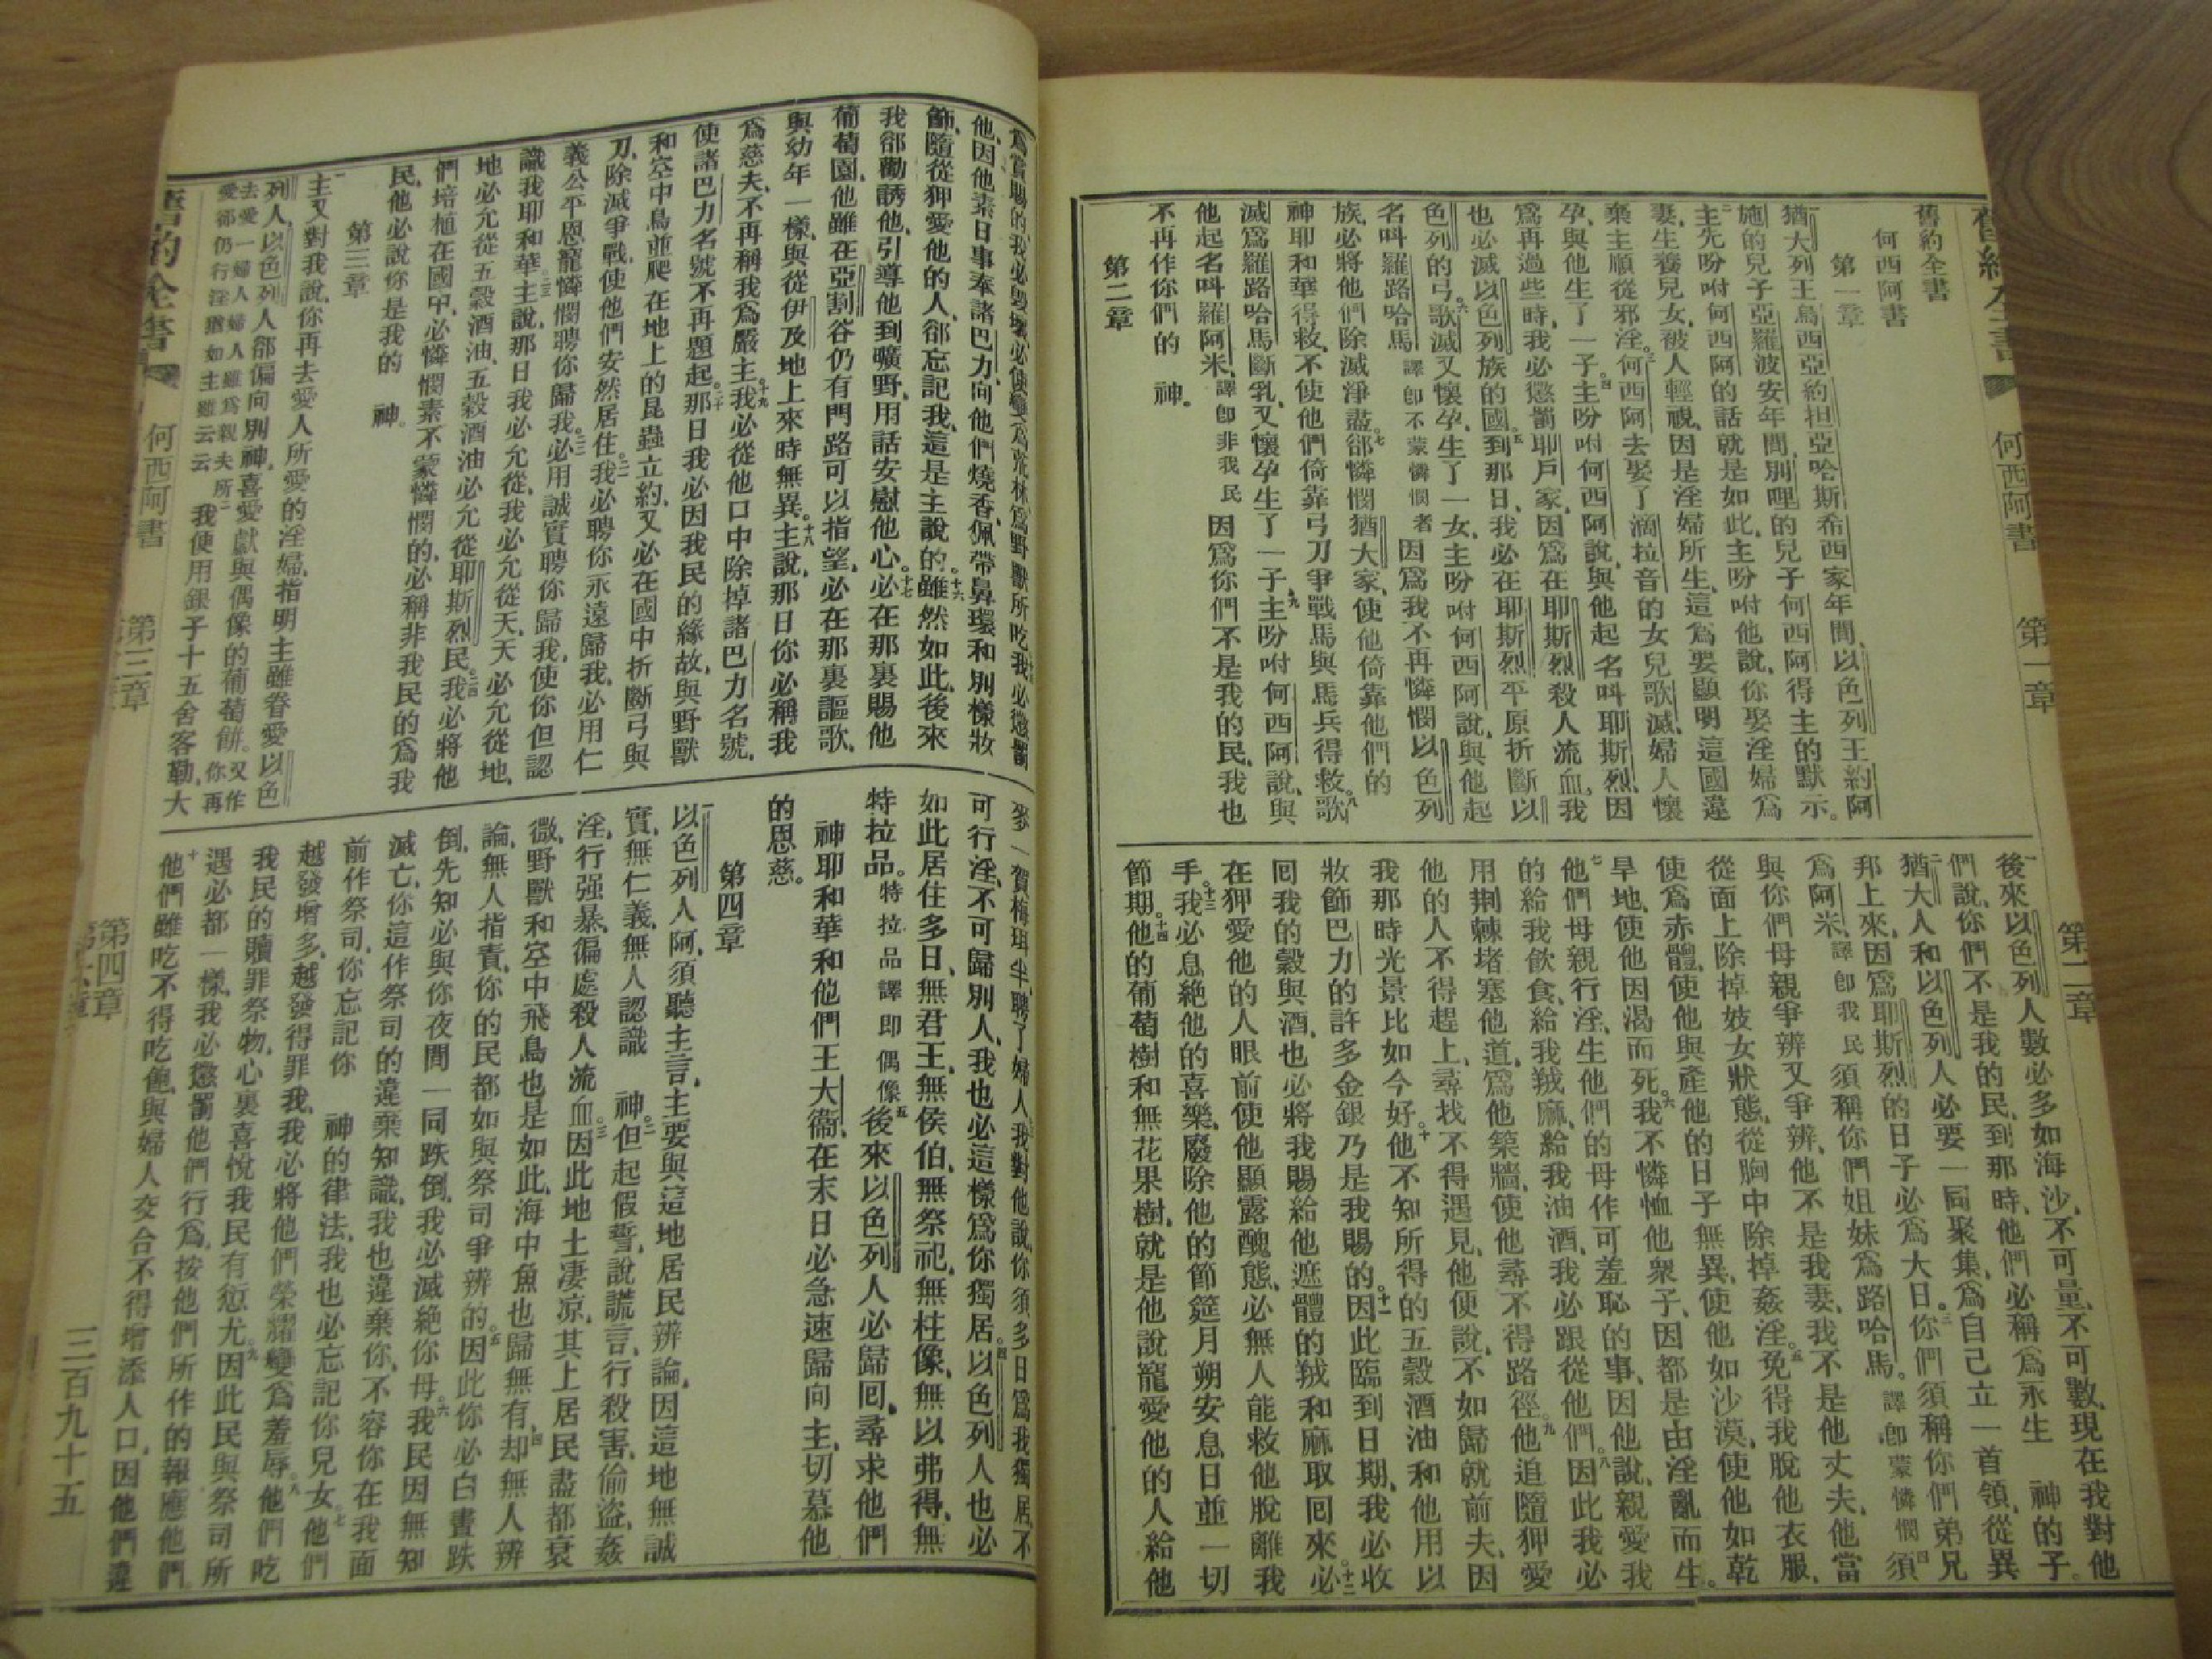 舊約全書
何西阿書
第一章
第二章
舊約全書
何西阿書
第一章
猶大列王烏西亞約担亞哈斯希西家年間、以色列王約阿
施的兒子亞羅波安年間、別哩的兒子何西阿得主的默示。
主先吩咐何西阿的話就是如此、主吩咐他說、你娶淫婦爲
妻、生養兒女、被人輕視、因是淫婦所生、這爲要顯明這國違
棄主順從邪淫。三何西阿去娶了滴拉音的女兒歌滅、婦人懷
孕、與他生了一子。四主吩咐何西阿說、與他起名叫耶斯烈、因
爲再過些時、我必懲罰耶戶家、因爲在耶斯烈殺人流血、我
也必滅以色列族的國。五到那日、我必在耶斯烈平原折斷以
色列的弓。六歌滅又懷孕、生了一女、主吩咐何西阿說、與他起
名叫羅路哈馬、譯卽不蒙憐憫者因爲我不再憐憫以色列
族、必將他們除滅淨盡。七郤憐憫猶大家、使他倚靠他們的
神耶和華得救、不使他們倚靠弓刀爭戰馬與馬兵得救。八歌
滅爲羅路哈馬斷乳、又懷孕生了一子。九主吩咐何西阿說、與
他起名叫羅阿米、譯卽非我民因爲你們不是我的民、我也
不再作你們的 神。
第二章
一後來以色列人數必多如海沙、不可量、不可數、現在我對他
們說、你們不是我的民、到那時、他們必稱爲永生 神的子。
二猶大人和以色列人必要一同聚集、爲自己立一首領、從異
邦上來、因爲耶斯烈的日子必爲大日。三你們須稱你們弟兄
爲阿米、譯卽我民須稱你們姐妹爲路哈馬。譯卽蒙憐憫四須
與你們母親爭辨又爭辨、他不是我妻、我不是他丈夫、他當
從面上除掉妓女狀態、從胸中除掉姦淫。五免得我脫他衣服、
使爲赤體、使他與產他的日子無異、使他如沙漠、使他如乾
旱地、使他因渴而死。六我不憐恤他衆子、因都是由淫亂而生。
七他們母親行淫、生他們的母作可羞恥的事、因他說、親愛我
的給我飲食、給我羢麻、給我油酒、我必跟從他們。八因此我必
用荆棘堵塞他道、爲他築牆、使他尋不得路徑。九他追隨狎愛
他的人不得趕上、尋找不得遇見、他便說、不如歸就前夫、因
我那時光景比如今好。十他不知所得的五穀酒油和他用以
妝飾巴力的許多金銀乃是我賜的。十一因此臨到日期、我必收
囘我的穀與酒、也必將我賜給他遮體的羢和麻取囘來。十二必
在狎愛他的人眼前使他顯露醜態、必無人能救他脫離我
手。十三我必息絶他的喜樂、廢除他的節筵月朔安息日並一切
節期。十四他的葡萄樹和無花果樹、就是他說寵愛他的人給他
爲賞賜的、我必毀壞、必使變爲荒林、爲野獸所吃。十五我必懲罰
他、因他素日事奉諸巴力、向他們燒香、佩帶鼻環和別樣妝
飾、隨從狎愛他的人、郤忘記我、這是主說的。十六雖然如此、後來
我郤勸誘他、引導他到曠野、用話安慰他心。十七必在那裏賜他
葡萄園、他雖在亞割谷仍有門路可以指望、必在那裏謳歌、
與幼年一樣、與從伊及地上來時無異。十八主說、那日你必稱我
爲慈夫、不再稱我爲嚴主。十九我必從他口中除掉諸巴力名號、
使諸巴力名號不再題起。二十那日我必因我民的緣故、與野獸
和空中鳥並爬在地上的昆蟲立約、又必在國中折斷弓與
刀、除滅爭戰、使他們安然居住。二一我必聘你永遠歸我、必用仁
義公平恩寵憐憫聘你歸我。二二必用誠實聘你歸我、使你但認
識我耶和華。二三主說、那日我必允從、我必允從天、天必允從地、
地必允從五穀酒油、五穀酒油必允從耶斯烈民。二四我必將他
們培植在國中、必憐憫素不蒙憐憫的、必稱非我民的爲我
民、他必說你是我的 神。
第三章
一主又對我說、你再去愛人所愛的淫婦、指明主雖眷愛以色
列人、以色列人郤偏向別神、喜愛獻與偶像的葡萄餅。又作你再
去愛一婦人婦人雖爲親夫所
愛郤仍行淫猶如主雖云云二我便用銀子十五舍客勒、大
麥一賀梅珥半聘了婦人。三我對他說、你須多日爲我獨居、不
可行淫、不可歸別人、我也必這樣爲你獨居。四以色列人也必
如此居住多日、無君王、無侯伯、無祭祀、無柱像、無以弗得、無
特拉品。特拉品譯卽偶像五後來以色列人必歸囘、尋求他們
神耶和華和他們王大衞、在末日必急速歸向主、切慕他
的恩慈。
第四章
一以色列人阿、須聽主言、主要與這地居民辨論、因這地無誠
實、無仁義、無人認識 神。二但起假誓、說謊言、行殺害、偷盜、姦
淫、行强暴、徧處殺人流血。三因此地土凄凉、其上居民盡都衰
微、野獸和空中飛鳥也是如此、海中魚也歸無有。四却無人辨
論、無人指責、你的民都如與祭司爭辨的。五因此你必白晝跌
倒、先知必與你夜間一同跌倒、我必滅絶你母。六我民因無知
滅亡、你這作祭司的違棄知識、我也違棄你、不容你在我面
前作祭司、你忘記你 神的律法、我也必忘記你兒女。七他們
越發增多、越發得罪我、我必將他們榮耀變爲羞辱。八他們吃
我民的贖罪祭物、心裏喜悅我民有愆尤。九因此民與祭司所
遇必都一樣、我必懲罰他們行爲、按他們所作的報應他們。
十他們雖吃不得吃飽、與婦人交合不得增添人口、因他們違
何西阿書
第三章
第四章
三百九十五